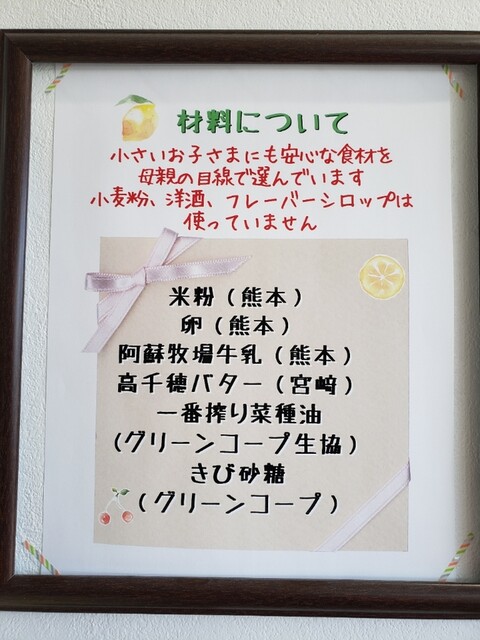 材料について
小さいお子さまにも安心な食材を
母親の目線で選んでいます
小麦粉、洋酒、フレーバーシロップは
使っていません
米粉（熊本）
卵（熊本）
阿蘇牧場牛乳（熊本）
高千穂バター（宮崎）
一番搾り菜種油
（グリーンコープ生協）
きび砂糖
（グリーンコープ）